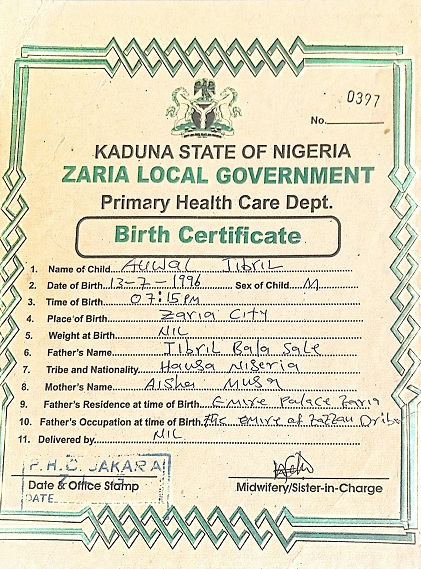 No. 0397
KADUNA STATE OF NIGERIA
ZARIA LOCAL GOVERNMENT
Primary Health Care Dept.
Birth Certificate
1. Name of Child Auwal Jibril
2. Date of Birth 13-7-1996 Sex of Child M
3. Time of Birth 07:15PM
4. Place of Birth Zaria City
5. Weight at Birth NIL
6. Father's Name Jibril Bala Sale
7. Tribe and Nationality Hausa Nigeria
8. Mother's Name Aisha Musa
9. Father's Residence at time of Birth Emire Palace Zaria
10. Father's Occupation at time of Birth the Emire of Zazzau
11. Delivered by NIL
P.H.C. JAKARA
Date & Office Stamp
DATE
Midwifery/Sister-in-Charge